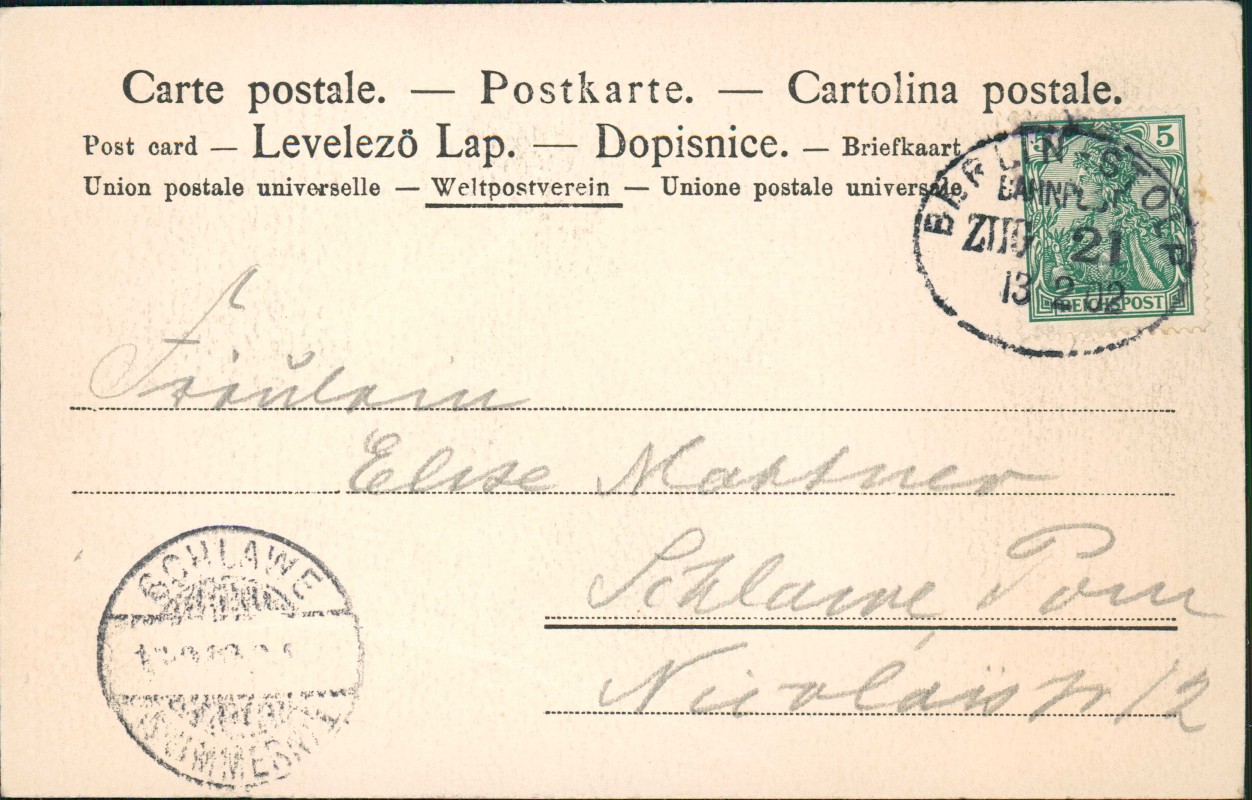 Carte postale. — Postkarte. — Cartolina postale.
Post card — Levelezö Lap. — Dopisnice. — Briefkaart
Union postale universelle — Weltpostverein — Unione postale universale.
5 5
REICHSPOST
BERLIN-STOLP
BAHNPOST
ZUG 21
13 2 02
Fräulein
Elise
Schlawe Pom
Nicolaistr 12
SCHLAWE